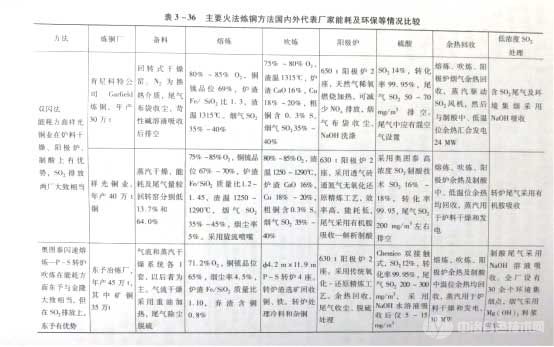 表 3-36 主要火法炼铜方法国内外代表厂家能耗及环保等情况比较
方法 炼铜厂 备料 熔炼 吹炼 阳极炉 硫酸 余热回收 低浓度 SO2
处理
双闪法
能耗方面祥光
铜业在炉料干
燥、阳极炉、
制酸上有优
势，SO2 排放
两厂大致相当
肯尼科特公
司 Garfield
炼铜，年产
30 万 t
回转式干燥
窑、N2 为换
热介质，尾气
布袋收尘，苛
性碱溶液吸收
后排空
80% ~ 85% O2，铜
锍品位 69%，炉渣
Fe/SiO2 比 1.3，渣
温 1315℃，烟气 SO2
35% ~ 40%
75% ~ 80% O2，渣
温 1315℃，炉
渣 CaO 16%，Cu
18% ~ 20%，粗
铜含 0.3% S，
烟气 SO2 35% ~
40%
650 t 阳极炉 2
座，天然气稀氧
燃烧加热，可减
少 NOx 排放，烟
气布袋收尘，
NaOH 洗涤
SO2 14%，转化
率 99.95%，尾
气 SO2 50 ~ 70
mg/m3 排空，
尾气中应有混空
气设置
熔炼、吹炼、阳
极炉烟气余热回
收，蒸汽驱动
SO2 风机，然后
与制酸中、低温
位余热汇合发电
24 MW
含 SO2 尾气及环
境集烟采用
NaOH 吸收
祥光铜业，
年产 40 万 t
铜
蒸汽干燥，能
耗及尾气量较
回转窑分别低
13.7% 和
64.0%
75% ~ 85% O2，铜锍品
位 67% ~ 70%，炉渣
Fe/SiO2 质量比 1.2 ~
1.45，渣温 1250 ~
1290℃，烟气 SO2
35% ~ 45%，烟尘率
5%，采用旋流喷嘴
80% ~ 85% O2，渣
温 1250 ~ 1290℃，
炉渣 CaO 16%，
Cu 18% ~ 20%，
粗铜含 0.3% S，
烟气 SO2 35% ~
40%
630 t 阳极炉 2
座，采用透气砖
通氮气无氧化还
原精炼工艺，效
率高，能耗低，
尾气采用有机胺
吸收—解析制酸
采用奥图泰高
浓度 SO2 制酸技
术 SO2 16% ~
18%，转化率
99.95，尾气 SO2
200 mg/m3 左右
排空
熔炼、吹炼、阳
极炉余热及制酸
中、低温位余热
均回收，蒸汽用
于炉料干燥和发
电
转炉尾气采用有
机胺吸收
奥图泰闪速熔
炼—P-S 转炉
吹炼在能耗方
面东予与金隆
大致相当，但
在 SO2 排放上，
东予有优势
东予冶炼厂，
年产 45 万 t，
其中矿铜
35 万 t
气流和蒸汽干
燥系统各 1
套，以后者为
主。气流干燥
采用重油加
热，尾气除尘
脱硫
71.2% O2，铜锍品位
65%，烟尘率 4.5%，
炉渣 Fe/SiO2 质量比
1.10，弃渣含铜
0.8%
φ4.2 m×11.9 m
P-S 转炉 4 座，
转炉渣选矿回收
铜、铁，转炉处
理冷料和杂铜
630 t 阳极炉 2
座，采用传统氧
化-还原精炼工
艺，余热回收，
尾气收尘、脱硫
处理
Chemico 双接触
式，SO2 12%，转化
率 99.95%，尾
气 SO2 200 ~ 300
mg/m3，采用
NaOH 水溶液吸
收后仅 5 ~ 15
mg/m3
熔炼、吹炼、阳
极炉余热及制酸
中温位余热均回
收，蒸汽用于炉
料干燥和发电，
10 MW
制酸尾气采用
NaOH 溶液吸
收。全厂设有
30 余个环境集
烟点，烟气采用
Mg(OH)2 料浆